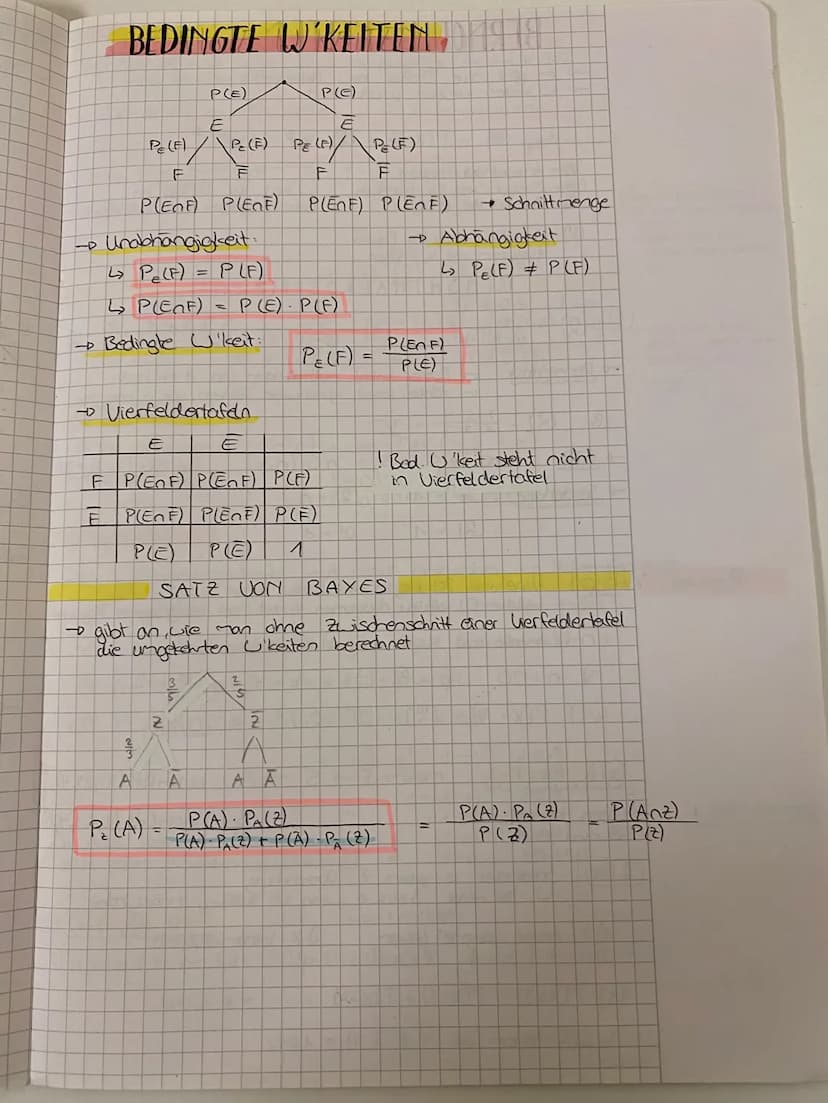 BEDINGTE W'KEITEN
P(E) P(E̅)
E E̅
P_E(F) P_E(F̅) P_E̅(F) P_E̅(F̅)
F F̅ F F̅
P(E∩F) P(E∩F̅) P(E̅∩F) P(E̅∩F̅) → Schnittmenge
→ Unabhängigkeit: → Abhängigkeit
↳ P_E(F) = P(F) ↳ P_E(F) ≠ P(F)
↳ P(E∩F) = P(E) · P(F)
→ Bedingte W'keit: P_E(F) = P(E∩F) / P(E)
→ Vierfeldertafeln
E E̅
F P(E∩F) P(E̅∩F) P(F)
F̅ P(E∩F̅) P(E̅∩F̅) P(F̅)
P(E) P(E̅) 1
! Bed. W'keit steht nicht
in Vierfeldertafel
SATZ VON BAYES
→ gibt an, wie man ohne Zwischenschritt einer Vierfeldertafel
die umgekehrten W'keiten berechnet
3/5 2/5
Z Z̅
2/3
A A̅ A A̅
P_Z(A) = P(A) · P_A(Z) / P(A) · P_A(Z) + P(A̅) · P_A̅(Z) = P(A) · P_A(Z) / P(Z) = P(A∩Z) / P(Z)